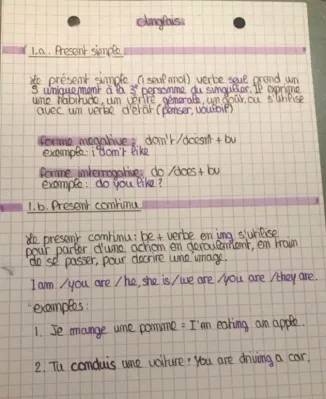 Anglais:
1.a. Present simple
Le présent simple (1 seul mot) verbe seul prend un
S uniquement à la 3e personne du singulier. Il exprime
une habitude, un vérité générale, un goût, ou s'utilise
avec un verbe d'état (penser, vouloir)
forme négative: don't/doesnt + bv
exemple: i don't like
forme interrogative: do/does + bv
exemple: do you like?
1.b. Present continu
Le present continu: be + verbe en ing s'utilise
pour parler d'une action en deroulement, en train
de se passer, pour decrire une image.
I am /you are /he, she is/we are /you are /they are.
exemples:
1. Je mange une pomme = I'm eating an apple.
2. Tu conduis une voiture = you are driving a car.